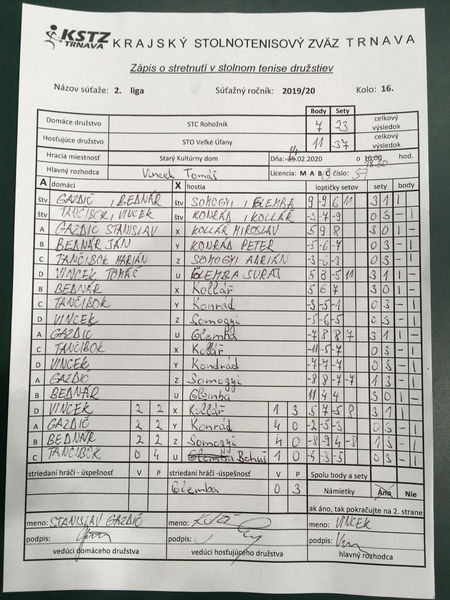 KSTZ TRNAVA KRAJSKÝ STOLNOTENISOVÝ ZVÄZ TRNAVA
Zápis o stretnutí v stolnom tenise družstiev
Názov súťaže: 2. liga Súťažný ročník: 2019/20 Kolo: 16.
Body Sety
Domáce družstvo STC Rohožník 7 23 celkový výsledok
Hosťujúce družstvo STO Veľké Úľany 11 37 celkový výsledok
Hracia miestnosť Starý Kultúrny dom Dňa: .02.2020 o hod.
Hlavný rozhodca Vincek Tomáš Licencia: M A B C číslo: 37
A domáci X hostia loptičky setov sety body
štv GAZDIČ, BEDNÁR štv SOMOGYI, GLEMBA 9 -9 6 11 3 1 1
štv TANCIBOK, VINCEK štv KONRÁD, KOLLÁR -3 -7 -9 0 3 - 1
A GAZDIČ STANISLAV X KOLLÁR MIROSLAV 5 9 8 3 0 1 -
B BEDNÁR JÁN Y KONRÁD PETER -5 -6 -7 0 3 - 1
C TANCIBOK MARIÁN Z SOMOGYI ADRIÁN -3 -6 -3 0 3 - 1
D VINCEK TOMÁŠ U GLEMBA JURAJ 5 8 -5 11 3 1 1 -
B BEDNÁR X Kollár 5 6 7 3 0 1 -
C TANCIBOK Y Konrád -3 -5 -1 0 3 - 1
D VINCEK Z Somogyi -5 -6 -5 0 3 - 1
A GAZDIČ U Glemba -7 8 8 7 3 1 1 -
C TANCIBOK X Kollár -11 -5 -7 0 3 - 1
D VINCEK Y Kondrád -7 -7 -7 0 3 - 1
A GAZDIČ Z Somogyi -8 8 -7 -7 1 3 - 1
B BEDNÁR U Glemba 11 4 4 3 0 1 -
D VINCEK 2 2 X Kollár 1 3 5 7 -5 8 3 1 1 -
A GAZDIČ 2 2 Y Konrád 4 0 -2 -5 -3 0 3 - 1
B BEDNÁR 2 2 Z Somogyi 4 0 -8 9 4 -8 1 3 - 1
C TANCIBOK 0 4 U Glemba Bohuš 1 0 -4 -3 -5 0 3 - 1
striedaní hráči - úspešnosť V P striedaní hráči - úspešnosť V P Spolu body a sety
Glemba 0 3 Námietky Áno Nie
ak áno, tak pokračujte na 2. strane
meno: STANISLAV GAZDIČ meno: meno: VINCEK
podpis: podpis: podpis:
vedúci domáceho družstva vedúci hosťujúceho družstva hlavný rozhodca